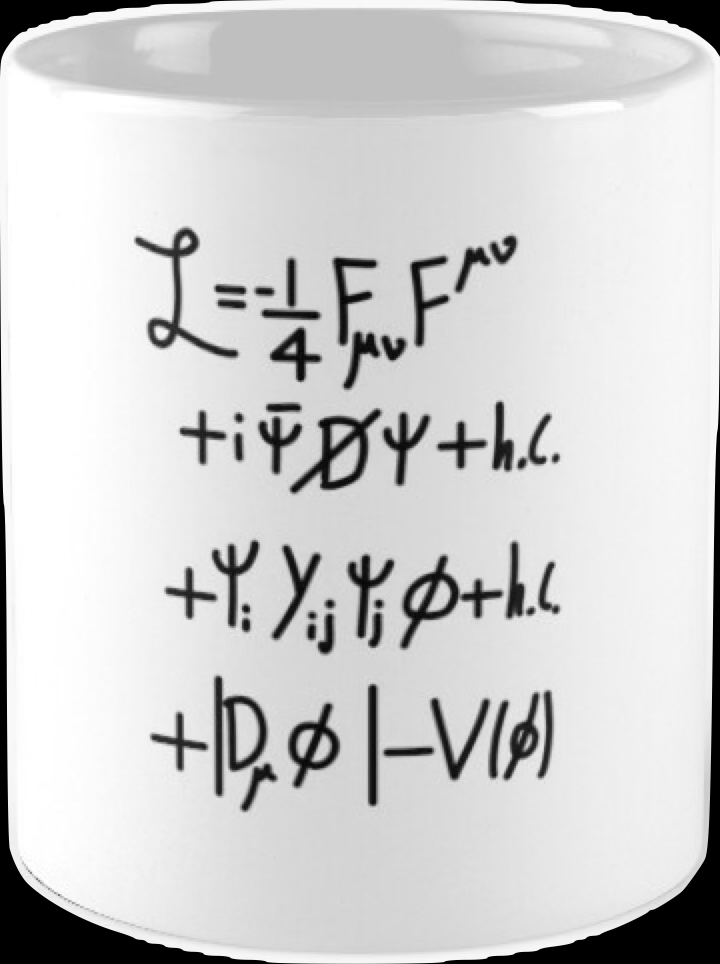 ℒ = -1/4 F_μν F^μν
+ i ψ̄ D̸ ψ + h.c.
+ ψ_i y_ij ψ_j φ + h.c.
+ |D_μ φ| - V(φ)